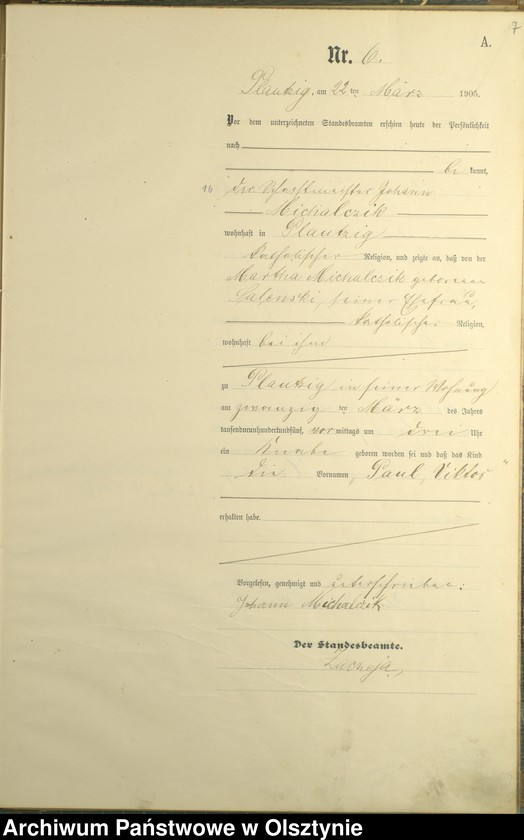 7
A.
Nr. 6.
Plautzig, am 22ten März 1905.
Vor dem unterzeichneten Standesbeamten erschien heute der Persönlichkeit
nach
be kannt,
16 der Johann
Michalczik
wohnhaft in Plautzig
katholischer Religion, und zeigte an, daß von der
Martha Michalczik geborenen
seiner Ehefrau,
katholischer Religion,
wohnhaft bei ihm
zu Plautzig in seiner Wohnung
am zwanzig ten März des Jahres
tausendneunhundertundfünf, vor mittags um drei Uhr
ein Knabe geboren worden sei und daß das Kind
die Vornamen Paul, Viktor
erhalten habe.
Vorgelesen, genehmigt und unterschrieben:
Johann Michalczik
Der Standesbeamte.
Archiwum Państwowe w Olsztynie